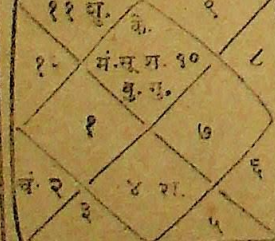 ११ शु.
९
के.
१२
मं. सू श. १०
८
बु. गु.
१
७
चं. २
४ रा.
६
३
५